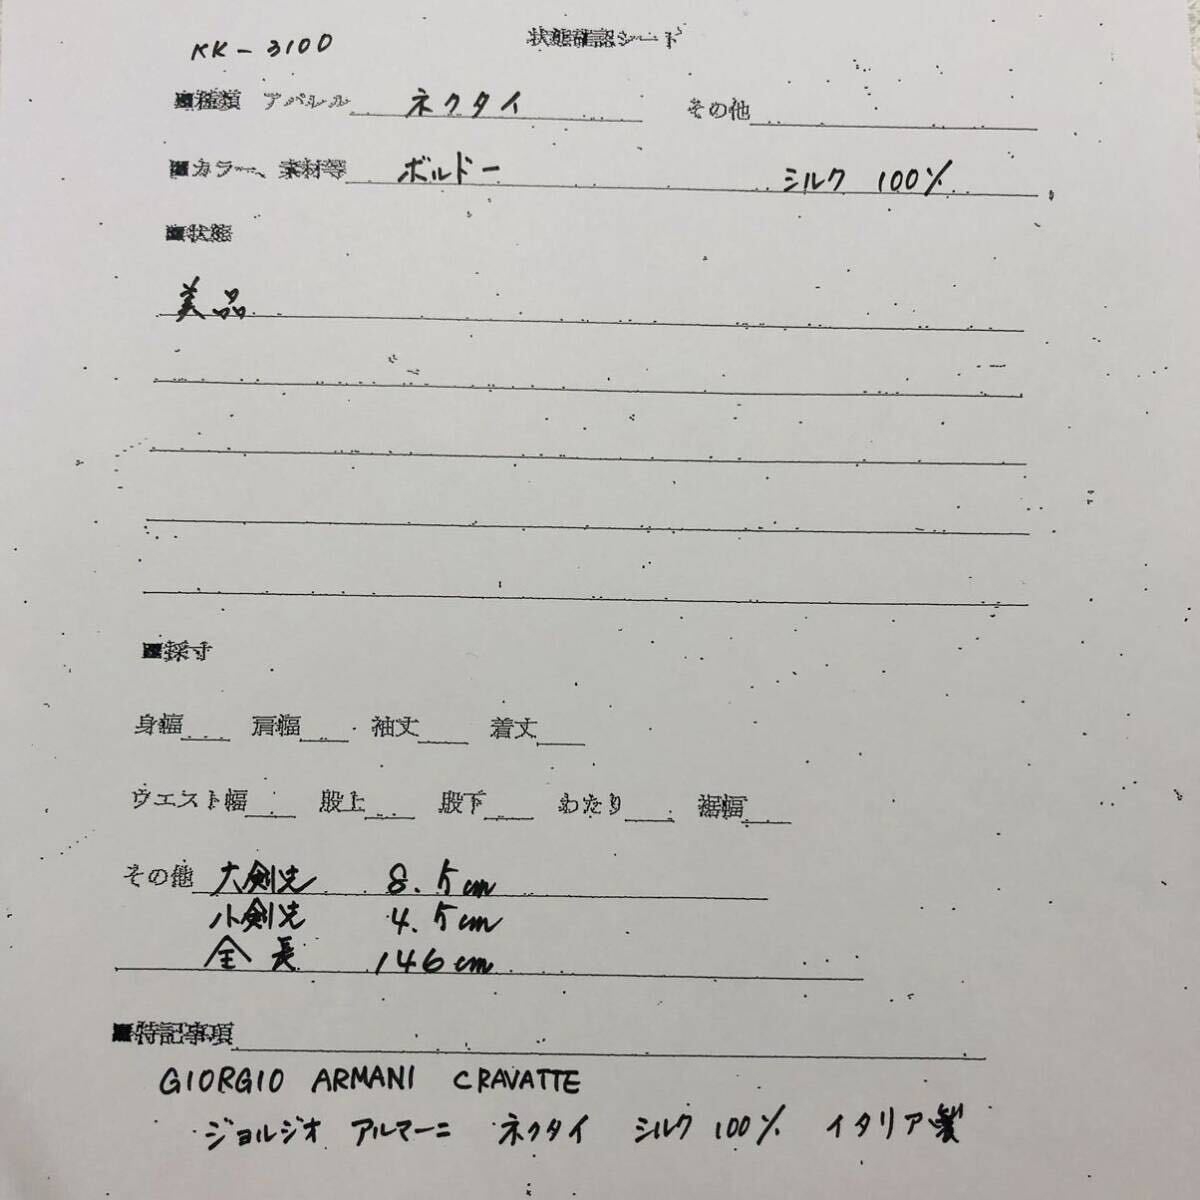 KK-3100 状態確認シート
■種類 アパレル ネクタイ その他
■カラー、素材等 ボルドー シルク 100%
■状態
美品
■採寸
身幅 肩幅 袖丈 着丈
ウエスト幅 股上 股下 わたり 裾幅
その他 大剣先 8.5cm
小剣先 4.5cm
全長 146cm
■特記事項
GIORGIO ARMANI CRAVATTE
ジョルジオ アルマーニ ネクタイ シルク 100% イタリア製